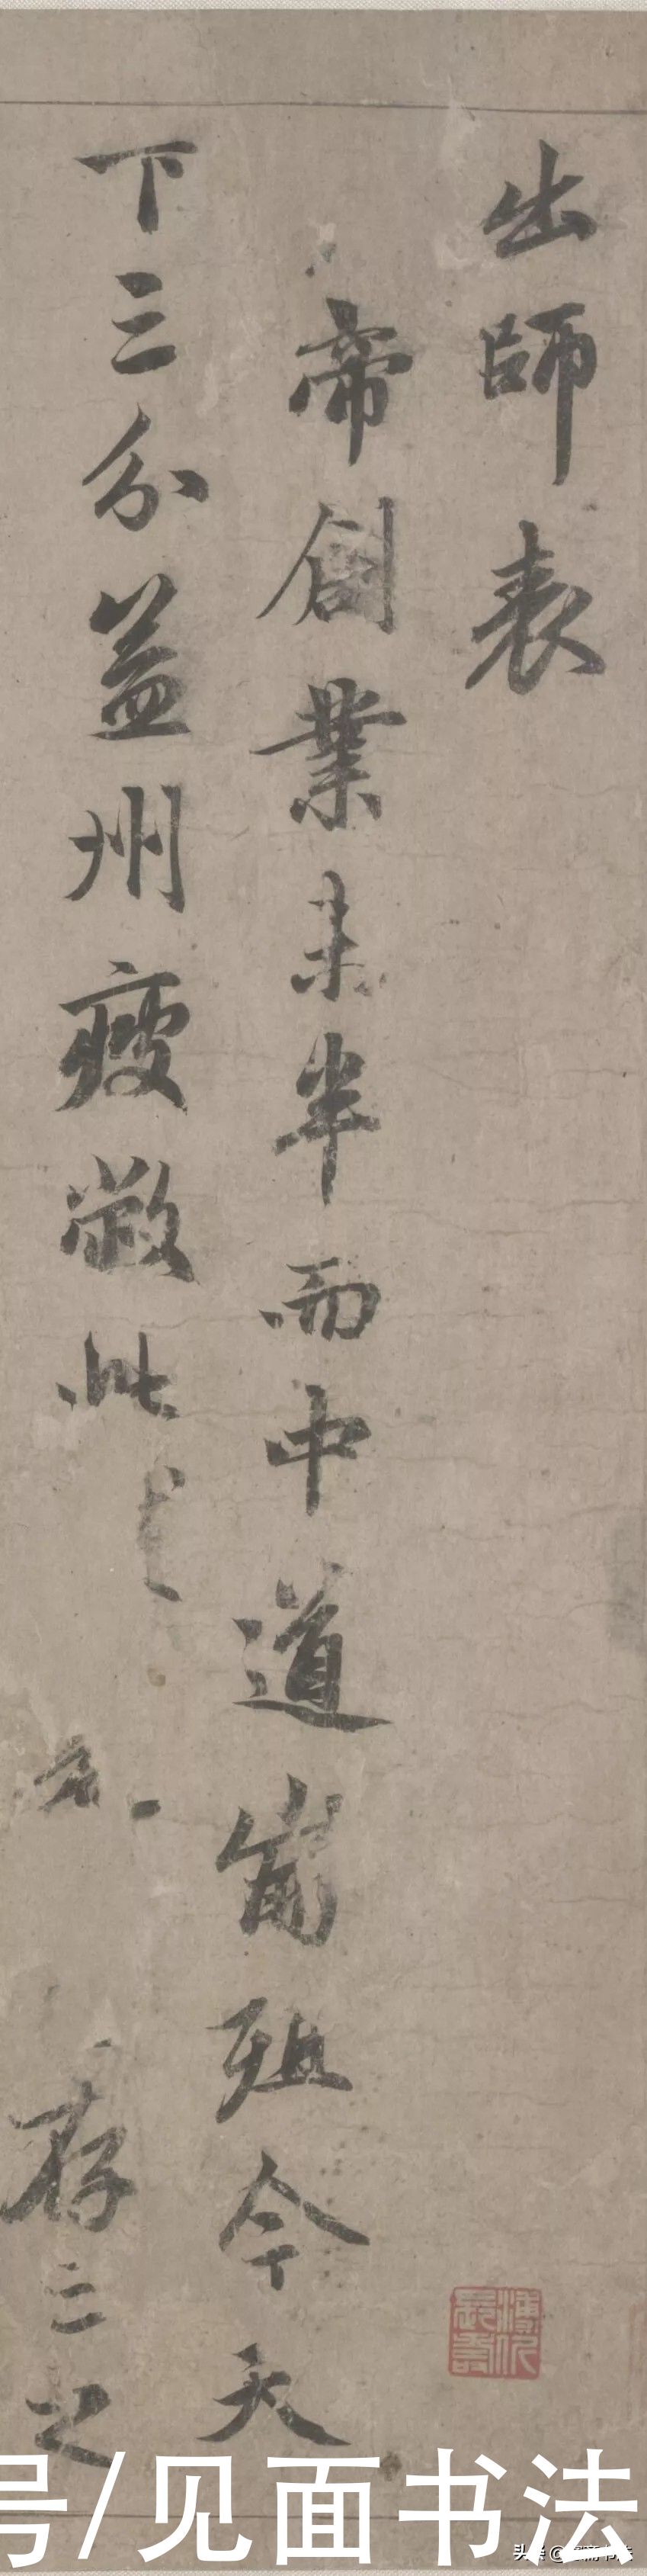 出師表
帝創業未半而中道崩殂今天
下三分益州疲敝此
存亡之
号/见面书法
头条@